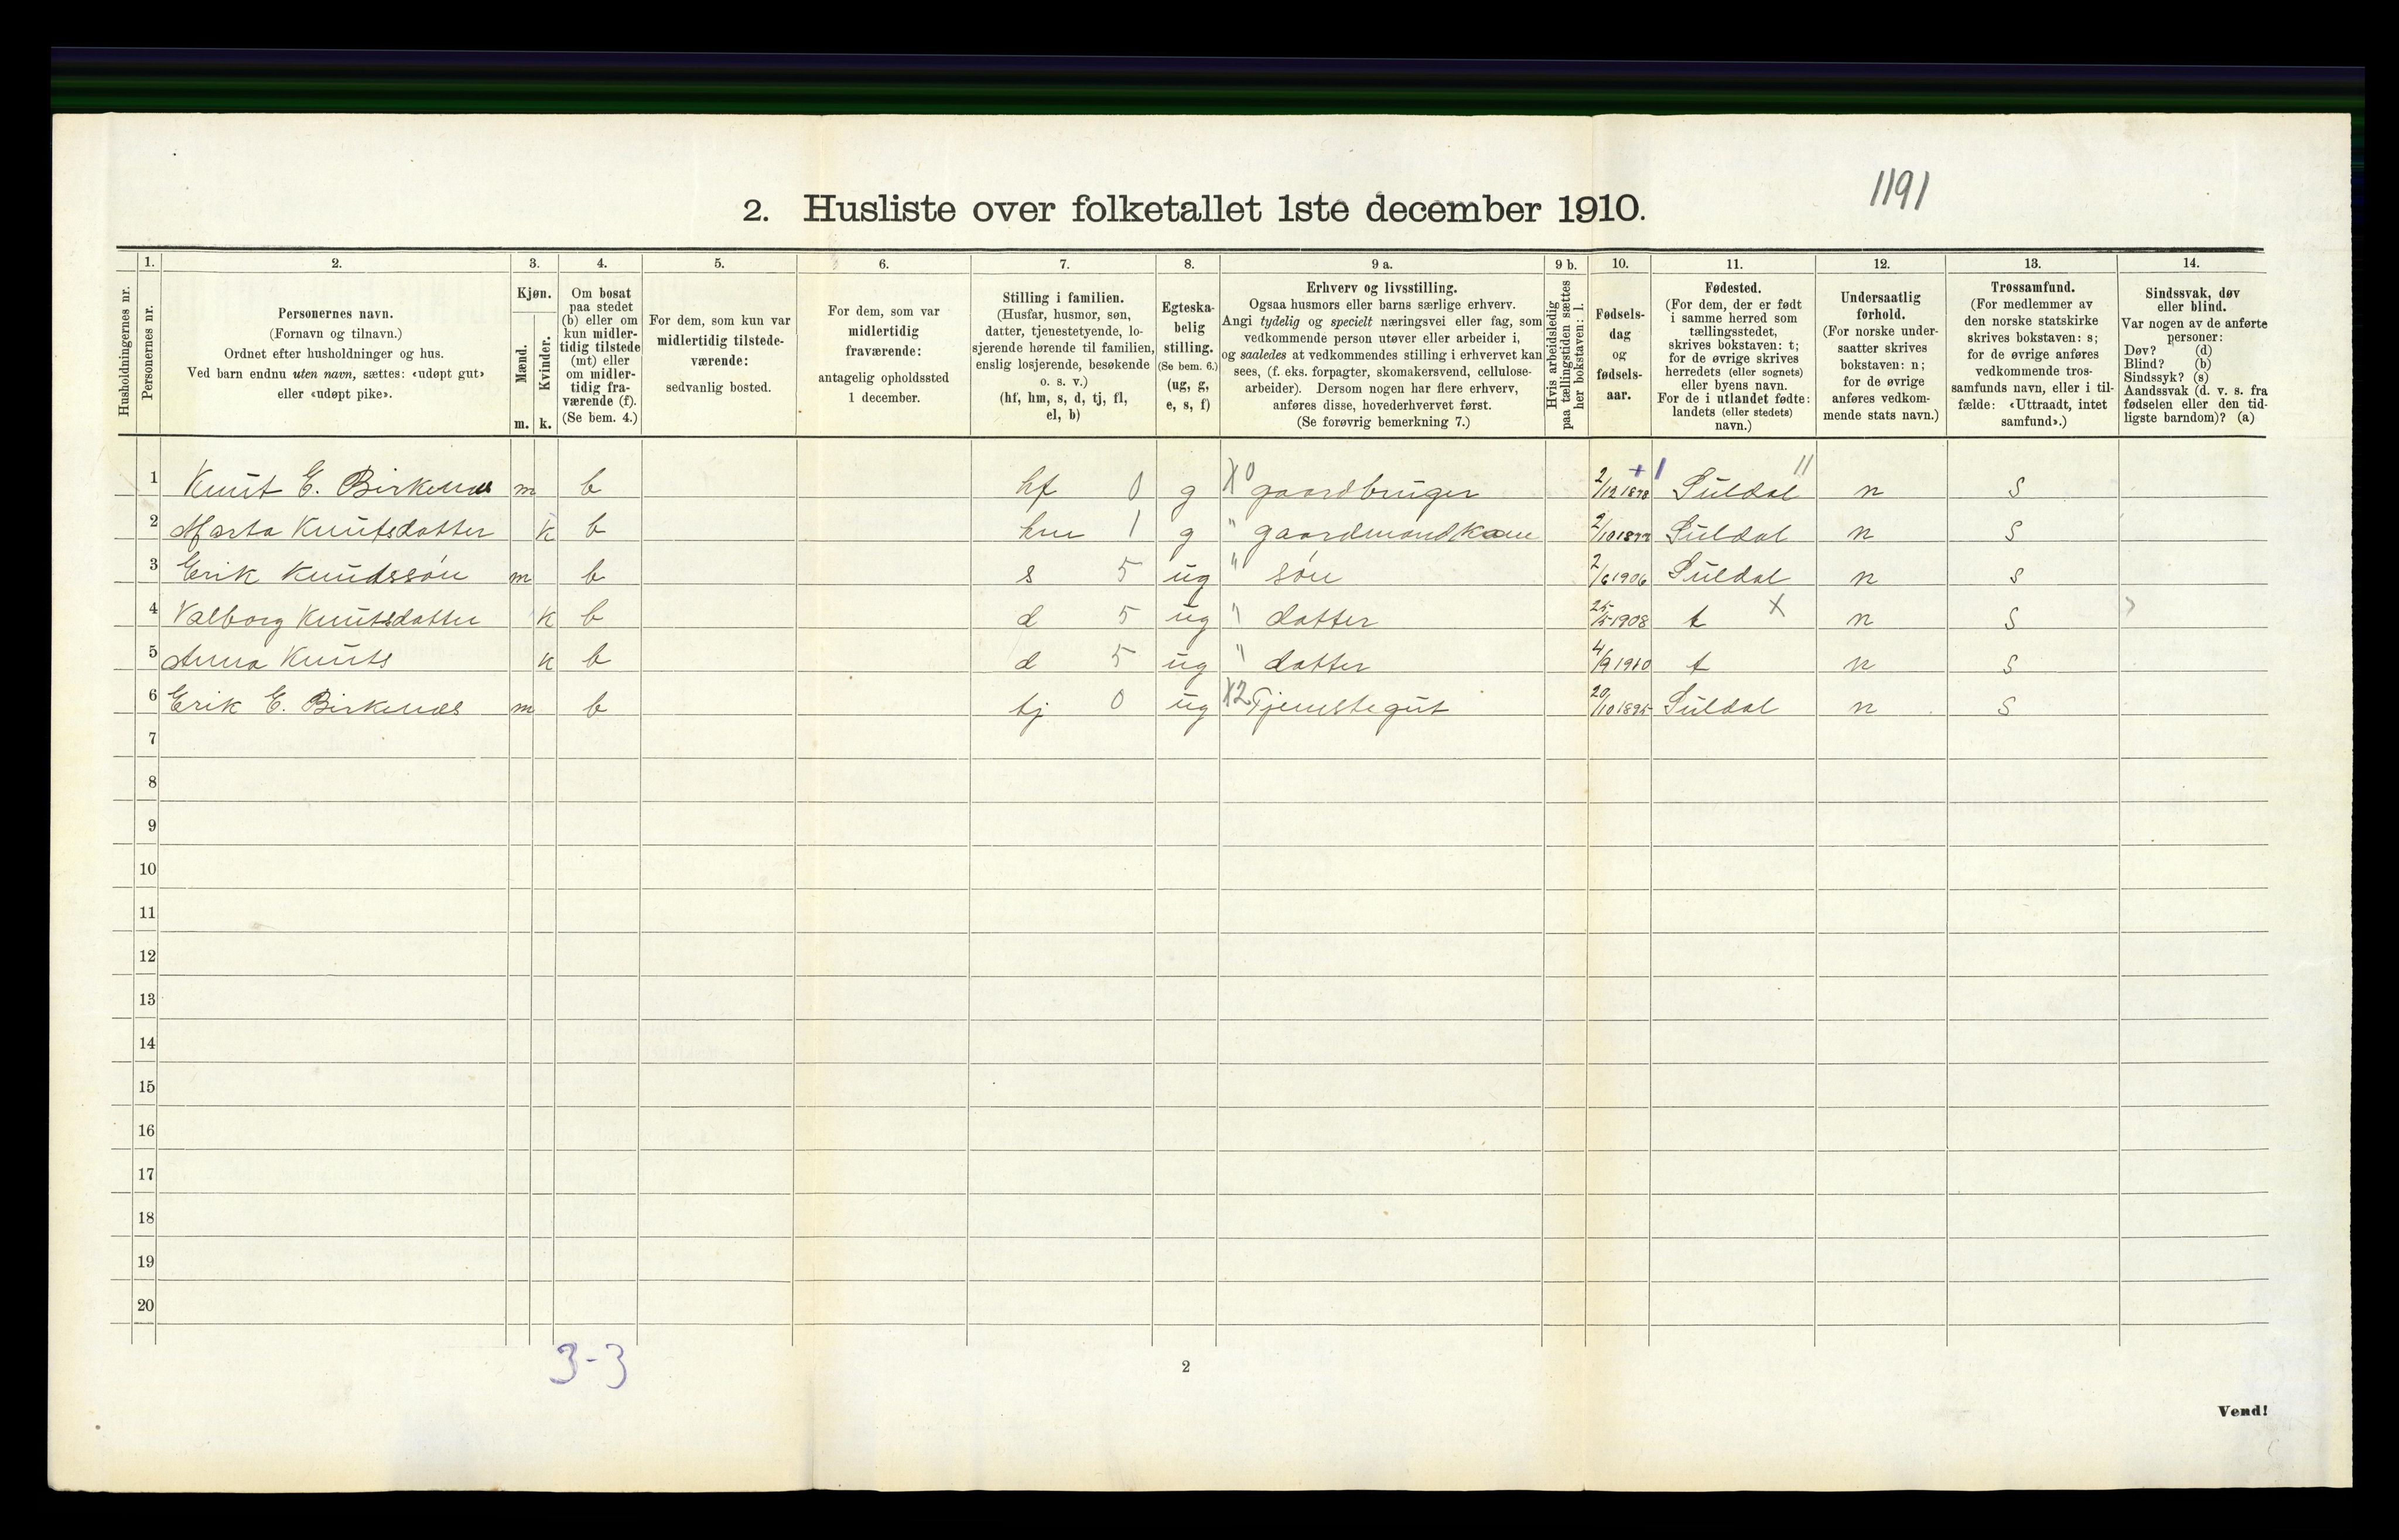 1191
2. Husliste over folketallet 1ste december 1910.
Husholdningernes nr.
1. Personernes nr.
2. Personernes navn.
(Fornavn og tilnavn.)
Ordnet efter husholdninger og hus.
Ved barn endnu uten navn, sættes: «udøpt gut»
eller «udøpt pike».
3. Kjøn.
Mænd. m.
Kvinder. k.
4. Om bosat
paa stedet
(b) eller om
kun midler-
tidig tilstede
(mt) eller
om midler-
tidig fra-
værende (f).
(Se bem. 4.)
5. For dem, som kun var
midlertidig tilstede-
værende:
sedvanlig bosted.
6. For dem, som var
midlertidig
fraværende:
antagelig opholdssted
1 december.
7. Stilling i familien.
(Husfar, husmor, søn,
datter, tjenestetyende, lo-
sjerende hørende til familien,
enslig losjerende, besøkende
o. s. v.)
(hf, hm, s, d, tj, fl,
el, b)
8. Egteska-
belig
stilling.
(Se bem. 6.)
(ug, g,
e, s, f)
9 a. Erhverv og livsstilling.
Ogsaa husmors eller barns særlige erhverv.
Angi tydelig og specielt næringsvei eller fag, som
vedkommende person utøver eller arbeider i,
og saaledes at vedkommendes stilling i erhvervet kan
sees, (f. eks. forpagter, skomakersvend, cellulose-
arbeider). Dersom nogen har flere erhverv,
anføres disse, hovederhvervet først.
(Se forøvrig bemerkning 7.)
9 b. Hvis arbeidsledig
paa tællingstiden sættes
her bokstaven: l.
10. Fødsels-
dag
og
fødsels-
aar.
11. Fødested.
(For dem, der er født
i samme herred som
tællingsstedet,
skrives bokstaven: t;
for de øvrige skrives
herredets (eller sognets)
eller byens navn.
For de i utlandet fødte:
landets (eller stedets)
navn.)
12. Undersaatlig
forhold.
(For norske under-
saatter skrives
bokstaven: n;
for de øvrige
anføres vedkom-
mende stats navn.)
13. Trossamfund.
(For medlemmer av
den norske statskirke
skrives bokstaven: s;
for de øvrige anføres
vedkommende tros-
samfunds navn, eller i til-
fælde: «Uttraadt, intet
samfund».)
14. Sindssvak, døv
eller blind.
Var nogen av de anførte
personer:
Døv? (d)
Blind? (b)
Sindssyk? (s)
Aandssvak (d. v. s. fra
fødselen eller den tid-
ligste barndom)? (a)
1 Knut E. Birkenæs m b hf 0 g X0 gaardbruger 2/12 1878 + 1 Suldal " n s
2 Marta Knutsdatter k b hm 1 g " 2/10 Suldal n s
3 Erik Knudssøn m b s 5 ug " søn 2/6 1906 Suldal n s
4 Valborg Knutsdatter k b d 5 ug " datter 25/5 1908 t X n s
5 Anna Knuts k b d 5 ug " datter 4/9 1910 t n s
6 Erik E. Birkenæs m b tj 0 ug X2 Tjenestegut 20/10 1895 Suldal n s
7
8
9
10
11
12
13
14
15
16
17
18
19
20
3-3
2
Vend!